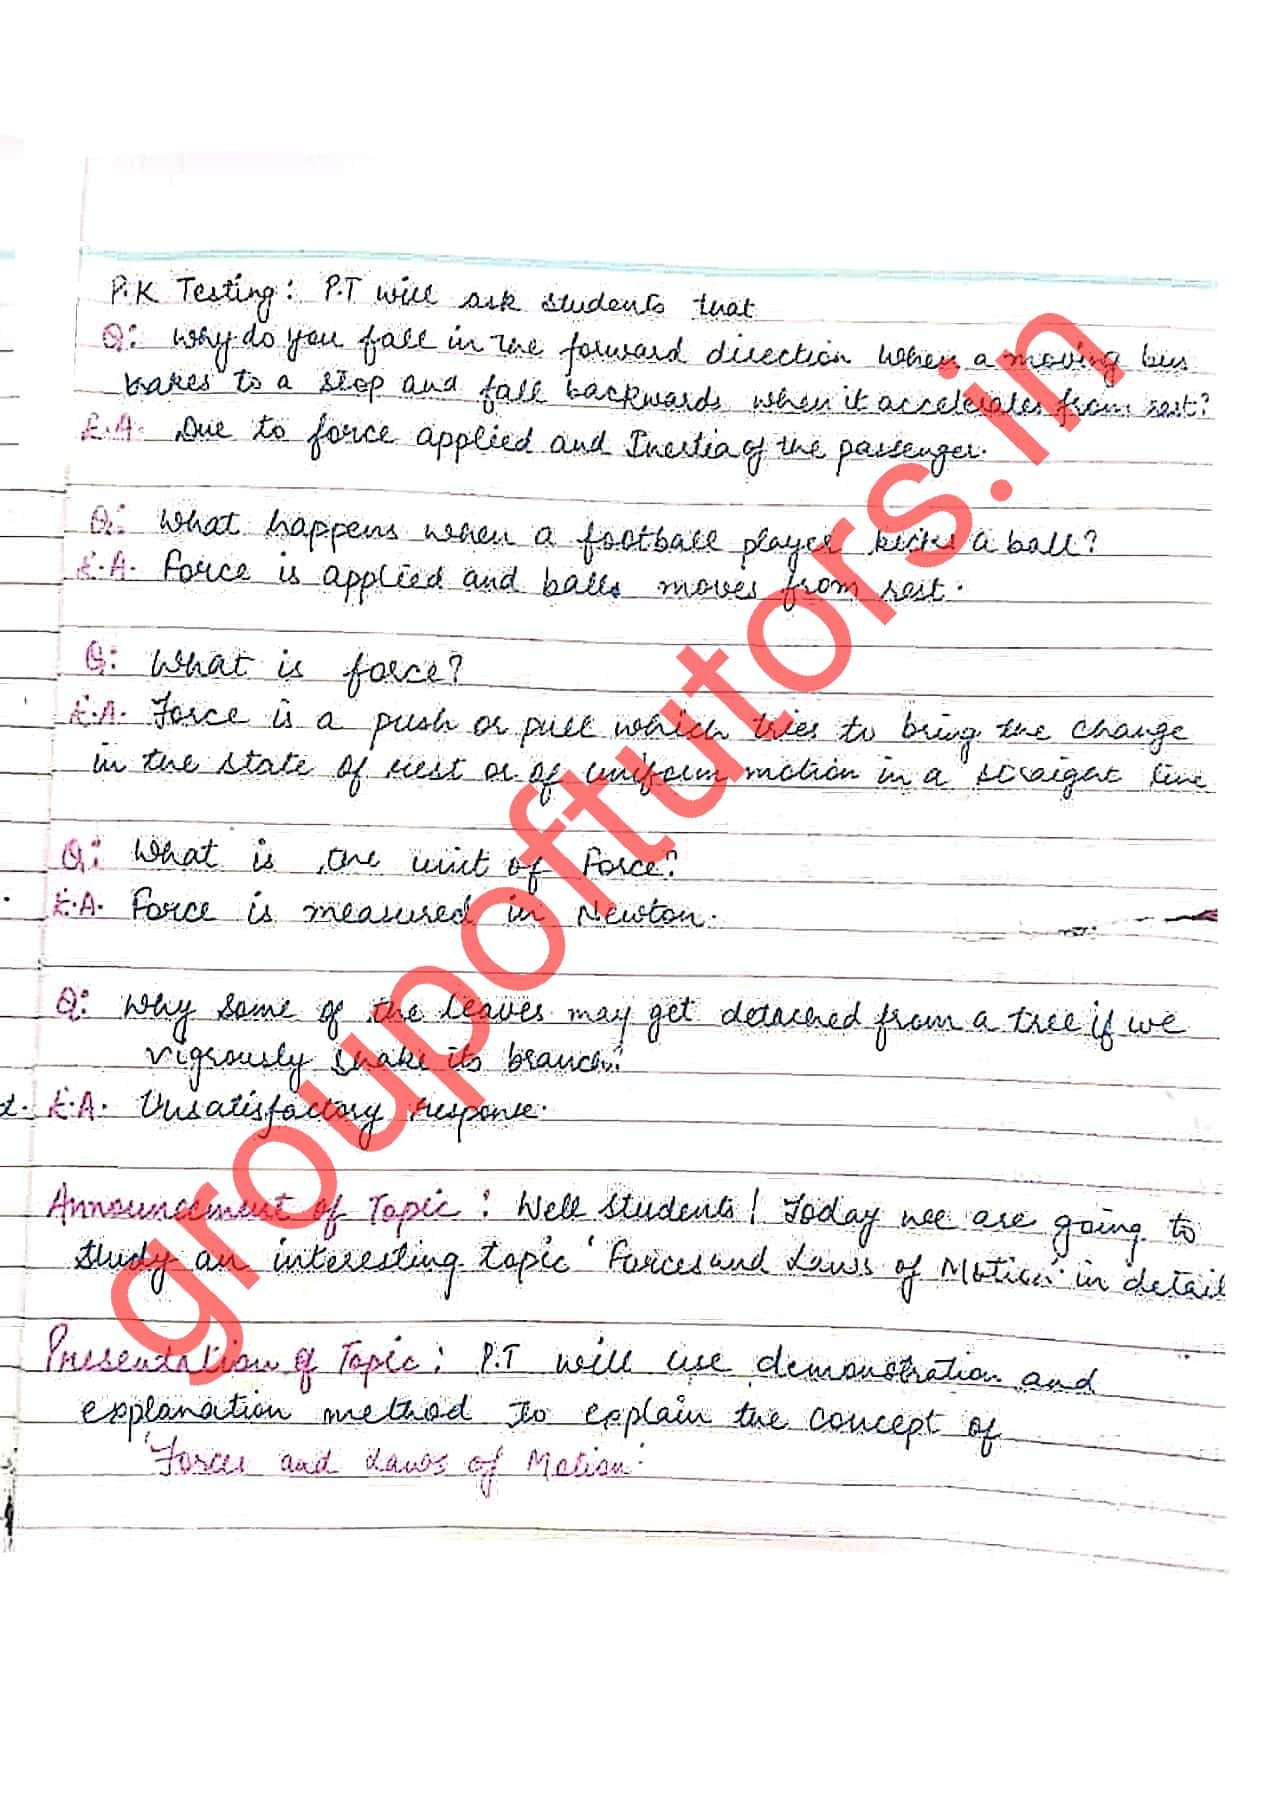 P.K Testing: P.T will ask students that
Q: Why do you fall in the forward direction when a moving bus
brakes to a stop and fall backwards when it accelerates from rest?
E.A. Due to force applied and Inertia of the passenger.
Q: What happens when a football player kicks a ball?
E.A. Force is applied and balls moves from rest.
Q: What is force?
E.A. Force is a push or pull which tries to bring the change
in the state of rest or of uniform motion in a straight line
Q: What is the unit of Force?
E.A. Force is measured in Newton.
Q: Why some of the leaves may get detached from a tree if we
vigrously shake its branch?
E.A. Unsatisfactory response.
Announcement of Topic: Well Students! Today we are going to
study an interesting topic 'Forces and Laws of Motion' in detail
Presentation of Topic: P.T will use demonstration and
explanation method to explain the concept of
'Forces and Laws of Motion.'
groupoftutors.in